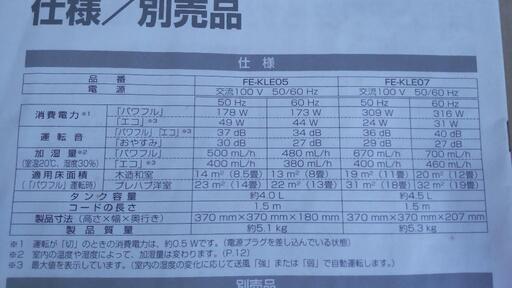 仕様／別売品
仕 様
品 番 FE-KLE05 FE-KLE07
電 源 交流100 V 50/60 Hz 交流100 V 50/60 Hz
50 Hz 60 Hz 50 Hz 60 Hz
消費電力※1 「パワフル」 178 W 173 W 309 W 316 W
「エコ」※3 49 W 44 W 24 W 31 W
運 転 音 「パワフル」「エコ」※3 37 dB 34 dB 36 dB 40 dB
「おやすみ」 30 dB 27 dB 29 dB 27 dB
加 湿 量※2 「パワフル」 500 mL/h 480 mL/h 670 mL/h 700 mL/h
(室温20℃、湿度30%) 「エコ」※3 400 mL/h 380 mL/h 400 mL/h 460 mL/h
適用床面積 木造和室 14 m²（8.5畳） 13 m²（8畳） 19 m²（11畳） 20 m²（12畳）
(「パワフル」運転時) プレハブ洋室 23 m²（14畳） 22 m²（13畳） 31 m²（18畳） 32 m²（19畳）
タ ン ク 容 量 約4.0 L 約4.5 L
コ ー ド の 長 さ 1.5 m 1.5 m
製品寸法（高さ×幅×奥行き） 370 mm×370 mm×180 mm 370 mm×370 mm×207 mm
製 品 質 量 約5.1 kg 約5.3 kg
※1 運転が「切」のときの消費電力は、約0.5 Wです。（電源プラグを差し込んでいる状態）
※2 室内の温度や湿度によって、加湿量は変わります。（P.12）
※3 最大値を表示しています。（室内の湿度の変化に応じて送風「強」または「弱」で自動運転します。）
別売品